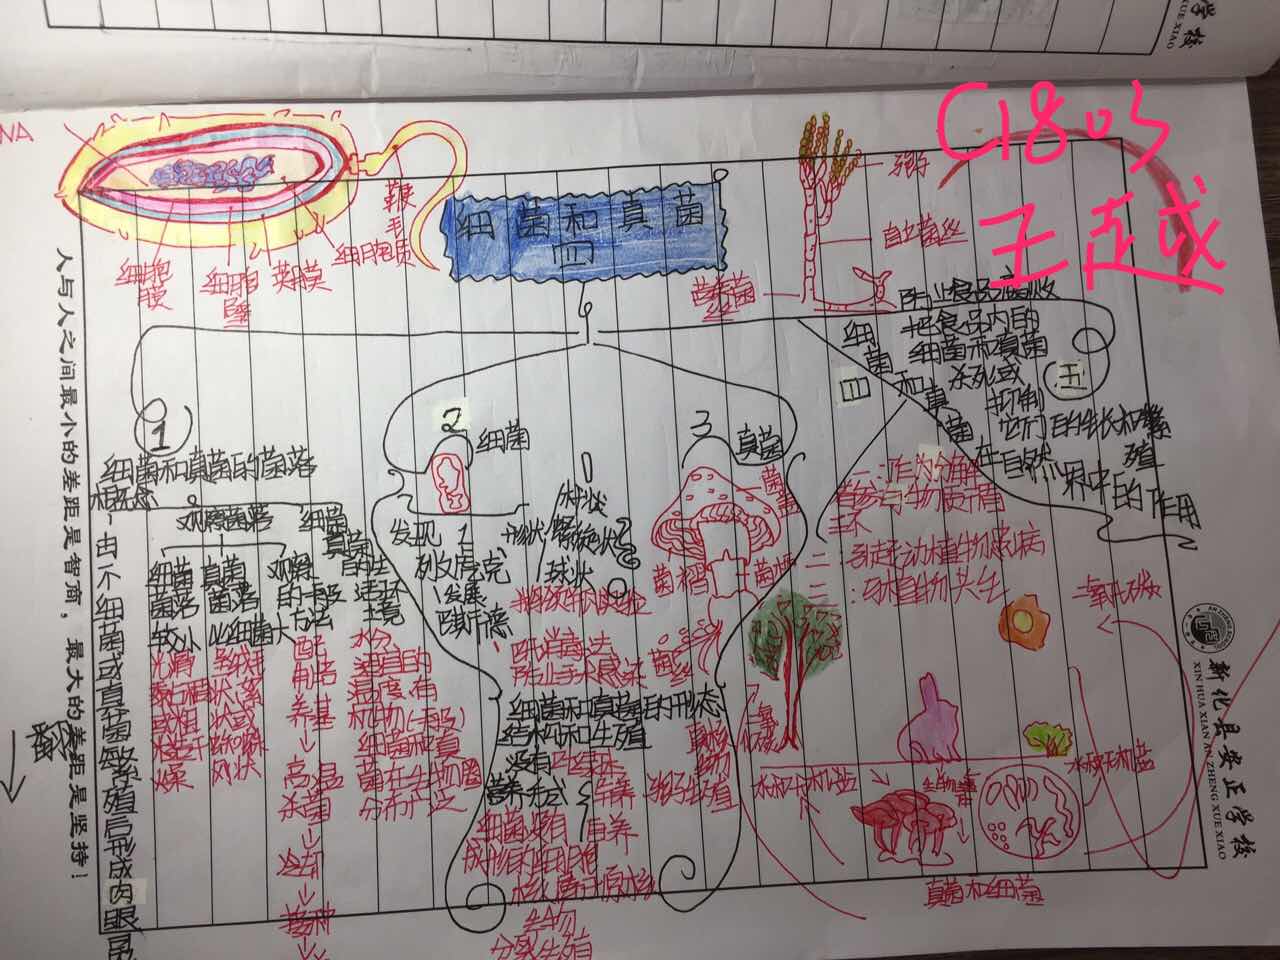 学校
XUE XIAO
C1803
王越
NA
鞭毛
细胞质
荚膜
细胞壁
细胞膜
细菌和真菌
四
孢子
直立菌丝
人与人之间最小的差距是智商，最大的差距是坚持！
1
细菌和真菌的菌落
概念
由一个细菌或真菌繁殖后形成肉眼
观察菌落
细菌菌落
较小
真菌菌落
比细菌大
光滑
配制培养基
↓
高温杀菌
↓
冷却
↓
接种
水分
适宜的温度,有机物
细菌和真菌在生物圈分布广泛
2
细菌
发现
列文虎克
发展
巴斯德
形状
杆状
螺旋状
球状
巴斯德
防止手术感染
细菌和真菌的形态
结构和生殖
没有叶绿体
营养方式
异养
自养
细菌没有
成形的细胞核
原核生物
分裂生殖
3
真菌
菌盖
菌褶
菌柄
菌丝
真核生物
孢子生殖
四
细菌和真菌
在自然界中的作用
一:作为分解者
参与物质循环
二:引起动植物患病
三:与动植物共生
五
防止食品腐败
把食品内的
细菌和真菌
杀死或
抑制
它们的生长和繁殖
二氧化碳
水和无机盐
水和无机盐
真菌和细菌
新化县安正学校
XIN HUA XIAN AN ZHENG XUE XIAO